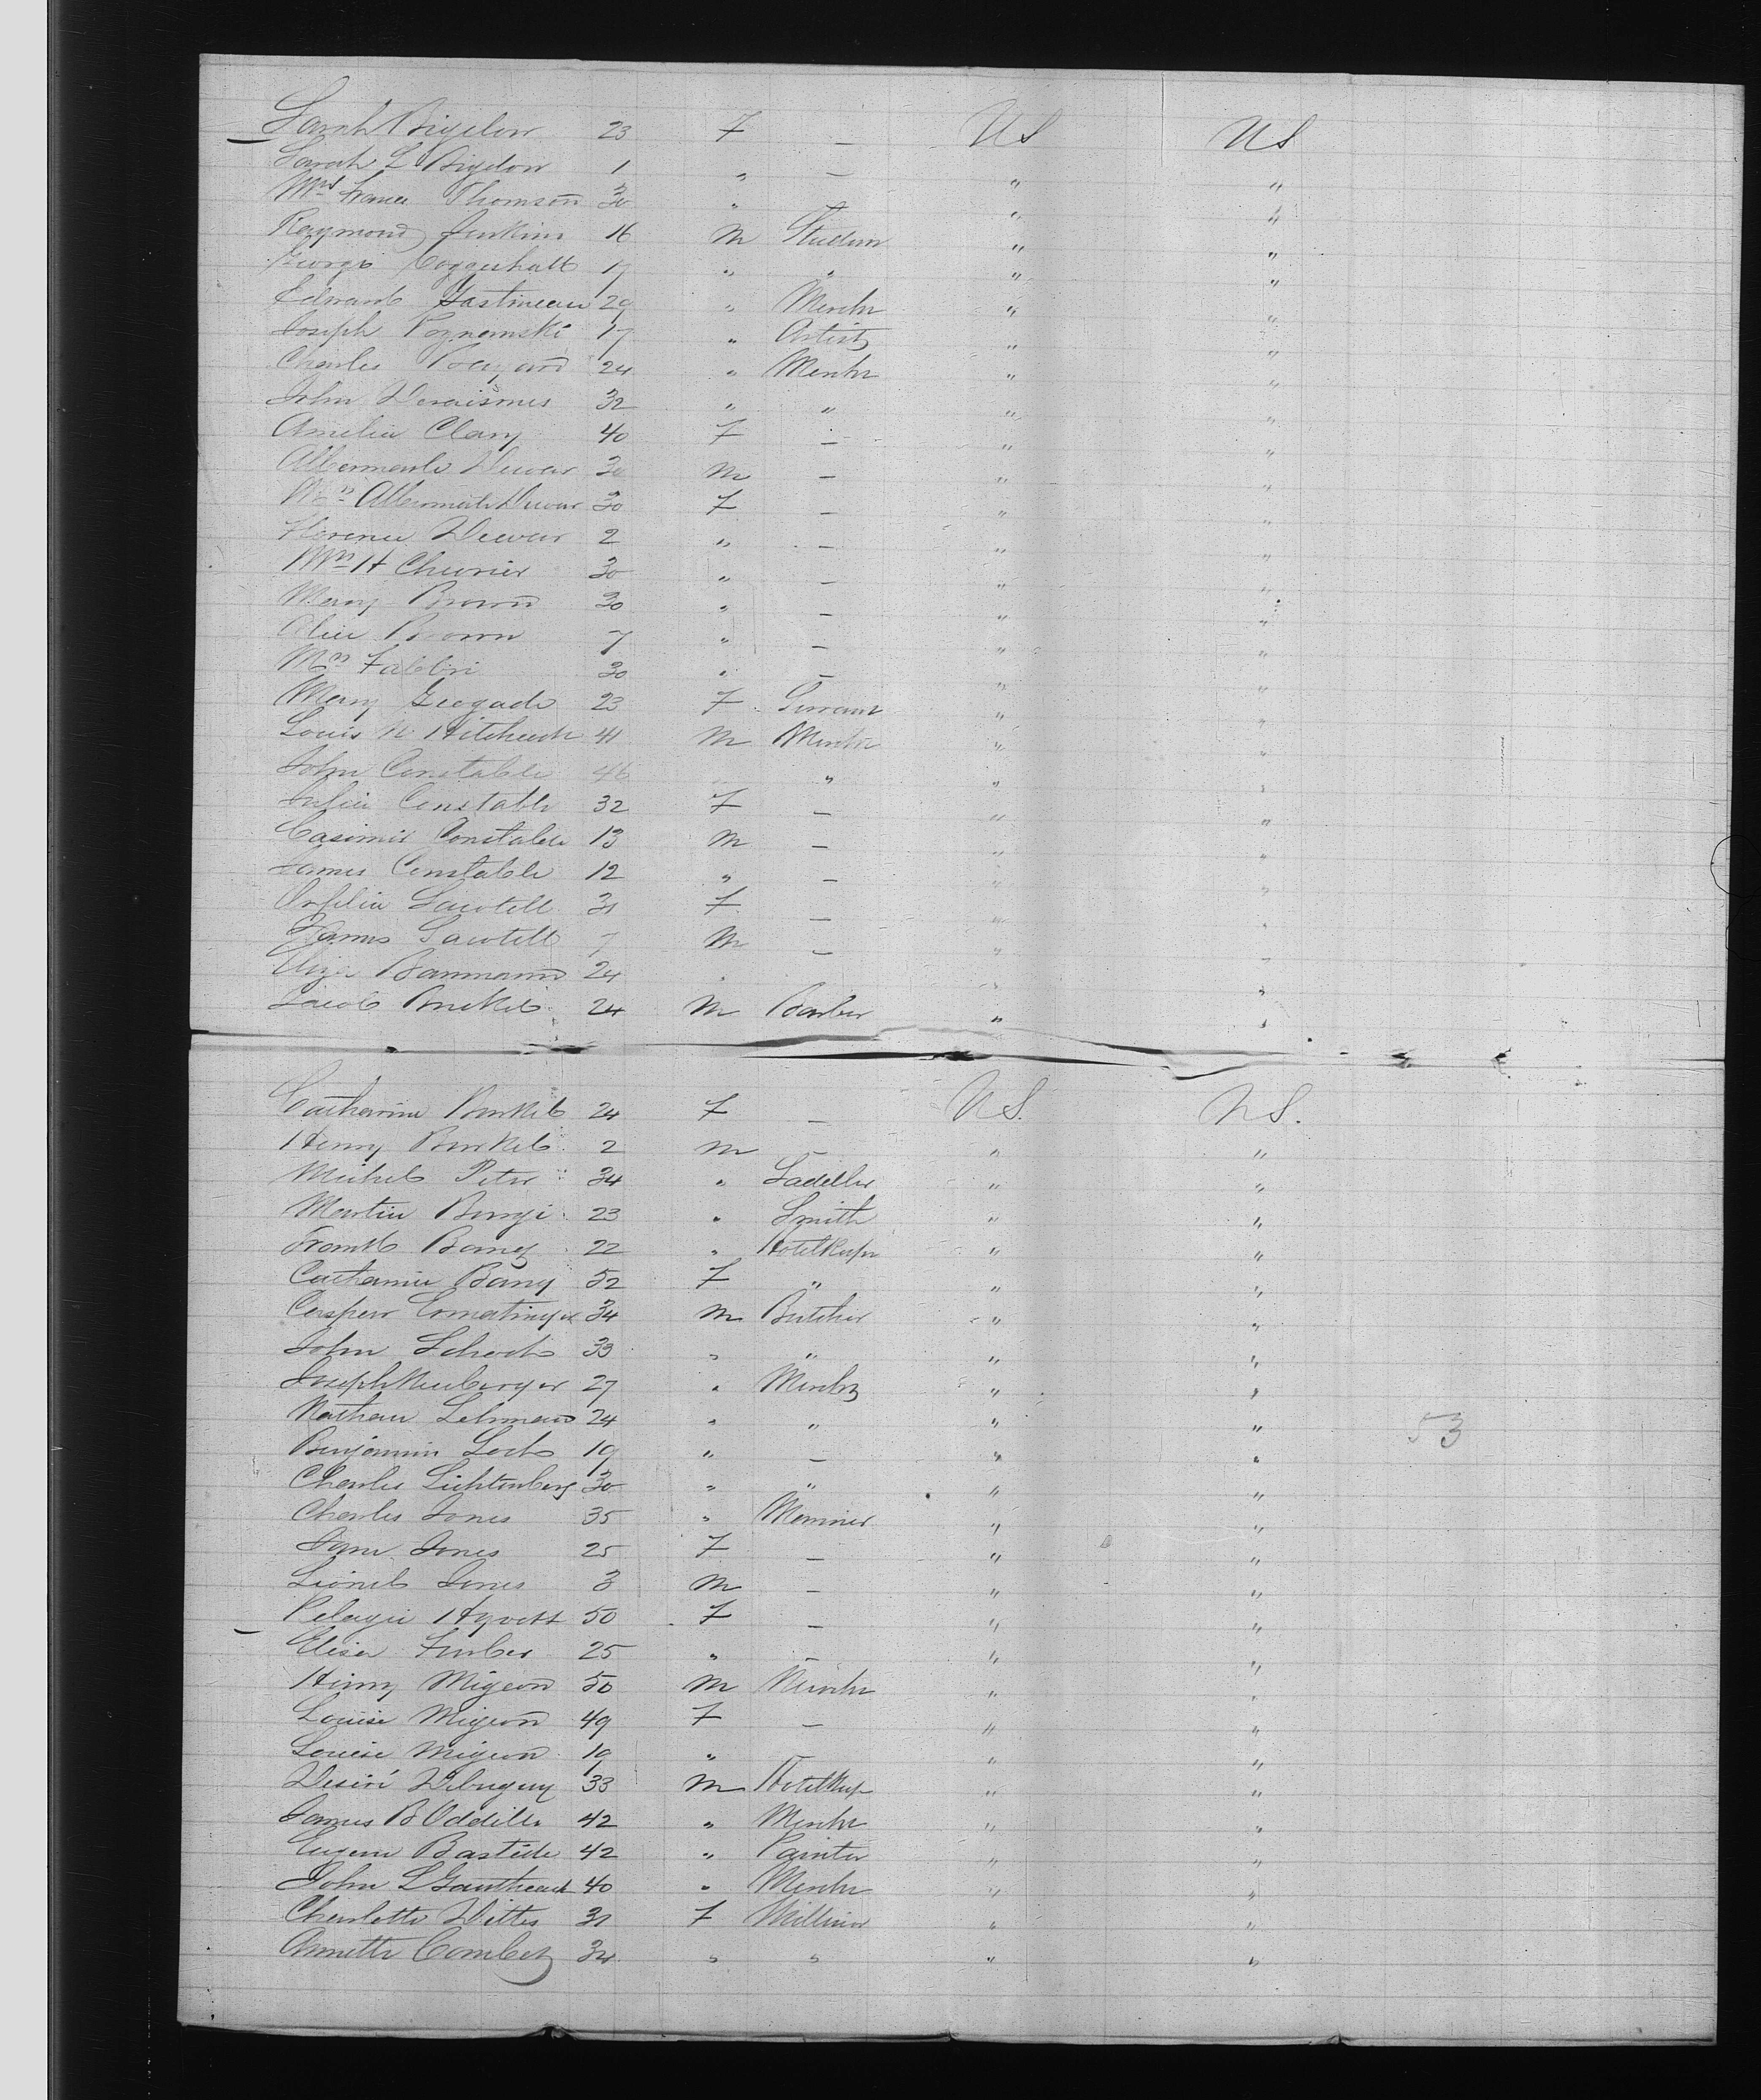 Sarah Bigelow 23 F — US US
Sarah L Bigelow 1 " — " "
Mrs France Thomson 30 " " "
Raymond Jenkins 16 M Student " "
George Coggeshall 17 " " " "
Edward Gastineau 29 " Mercht " "
Joseph Poznanski 17 " Artist " "
Charles 24 " Mercht " "
John Deraismes 32 " " " "
Amelia Clary 40 F — " "
Albermarle Dewar 30 M — " "
Mrs Albermarle Dewar 30 F — " "
Florence Dewar 2 " — " "
Mrs H Cheonier 30 " — " "
Mary Brown 30 " — " "
Alice Brown 7 " — " "
Mrs Fabbri 30 " — " "
Mary 23 F Servant " "
Louis N Hitchcock 41 M Mercht " "
John Constable 46 " " "
Julia Constable 32 F — " "
Casimir Constable 13 M — " "
James Constable 12 " — " "
Orfilia Sawtell 31 F — " "
James Sawtell 7 M — " "
Eliza Baumann 24 " " "
Jacob 24 M Barber " "
Catharine 24 F — US. US.
Henry 2 M — " "
Michel Peter 34 " Saddler " "
Martin Burgi 23 " Smith " "
Frank Bang 22 " Hotelkeper " "
Catharine Bang 52 F " " "
Casper Ermatinger 34 M Butcher " "
John Schoch 33 " " " "
Joseph Neuberger 27 " Mercht " "
Nathan Lehmann 24 " " " "
Benjamin Loch 19 " — " " 53
Charles Lichtenberg 30 " " " "
Charles Jones 35 " Mariner " "
Jane Jones 25 F — " "
Lionel Jones 3 M — " "
Pelagie Hyvott 50 F — " "
Elisa Furber 25 " — " "
Henry Migeon 50 M Mercht " "
Louise Migeon 49 F — " "
Louise Migeon 19 " — " "
Desiré 33 M Hotelkeep " "
James B Oddille 42 " Mercht " "
Eugene Bastide 42 " Painter " "
John L Gautheault 40 " Mercht " "
Charlotte Wittes 31 F Milliner " "
Annette Combez 34 " " " "